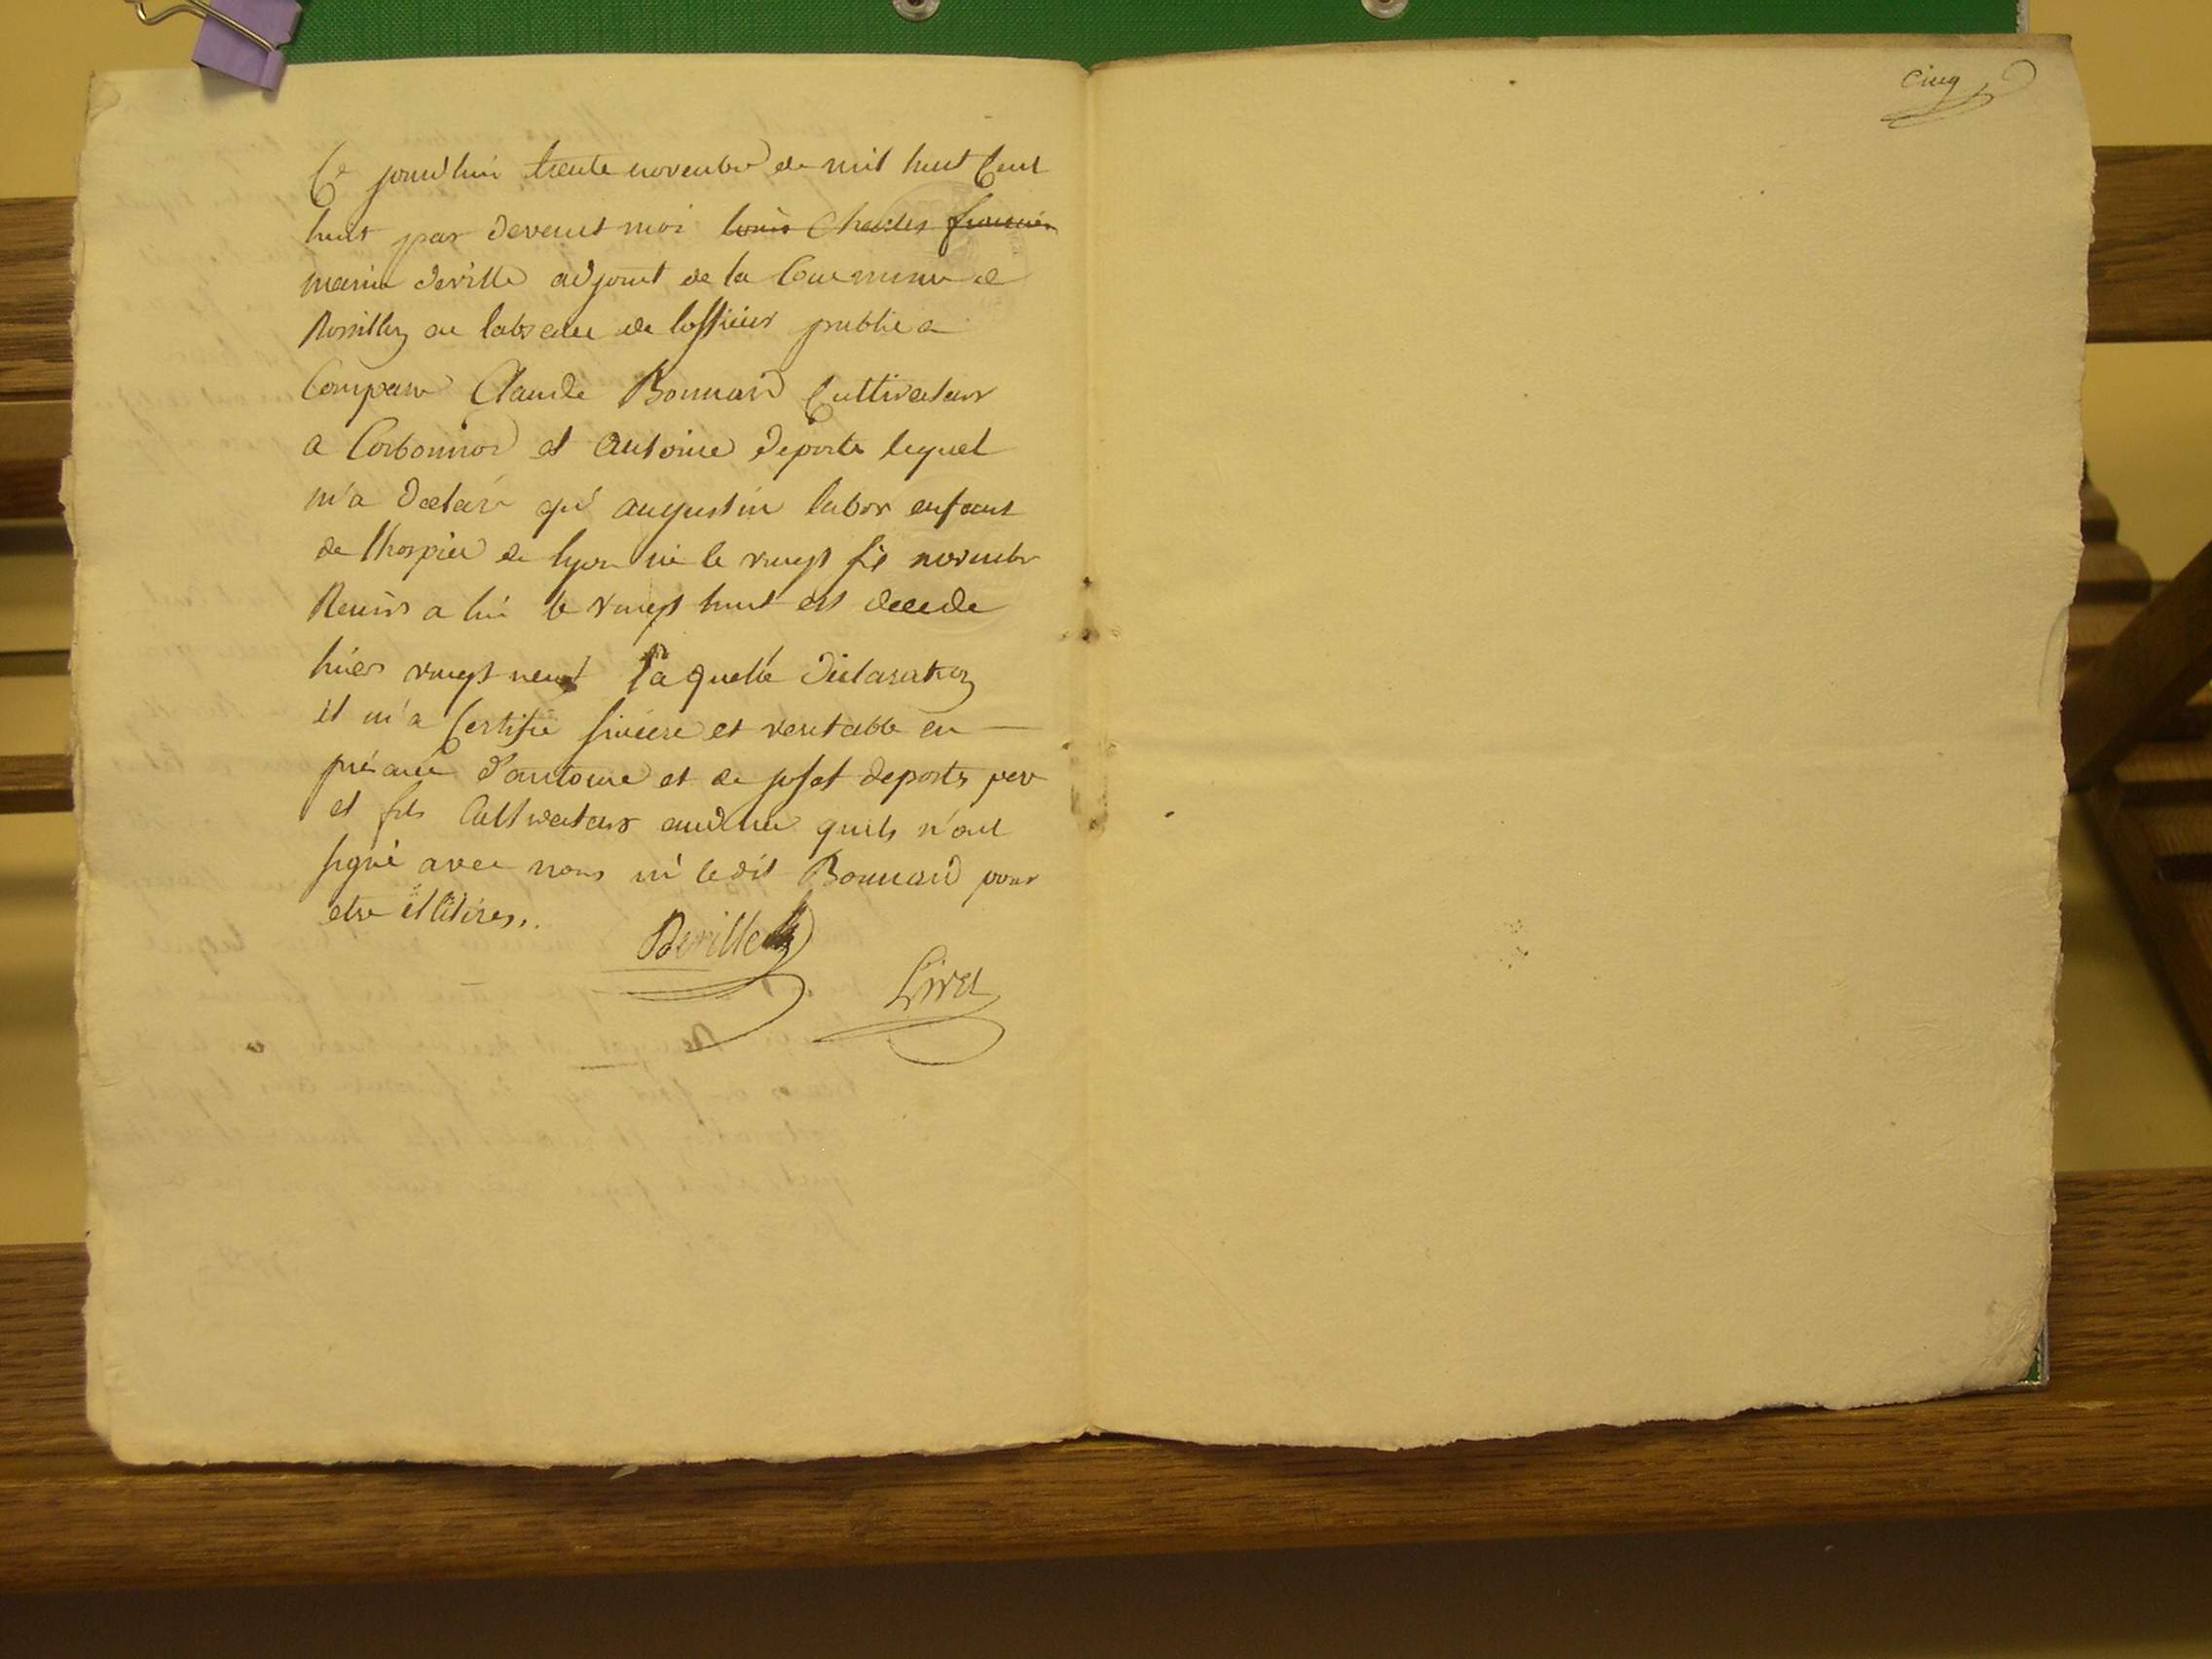 Ce jourd'hui trente novembre de mil huit Cent
huit par devent moi louis Charles francois
marin deville adjoint de la Commune de
Rossillon en labsence de lofficier public a
Comparu Claude Bonnard Cultivateur
a Corbonnod et antoine deporte lequel
m'a declaré qu' augustin labor enfant
de lhospice de lyon né le vingt six novembre
Remis a lui le vingt huit est decede
hier vingt neuf laquelle declaration
il m'a Certifié sincere et veritable en
présence d'antoine et de josef deporte pere
et fils Cultivateurs quils n'ont
signé avec nous ni ledit Bonnard pour
etre illitirés.
Deville
Livet
Cinq